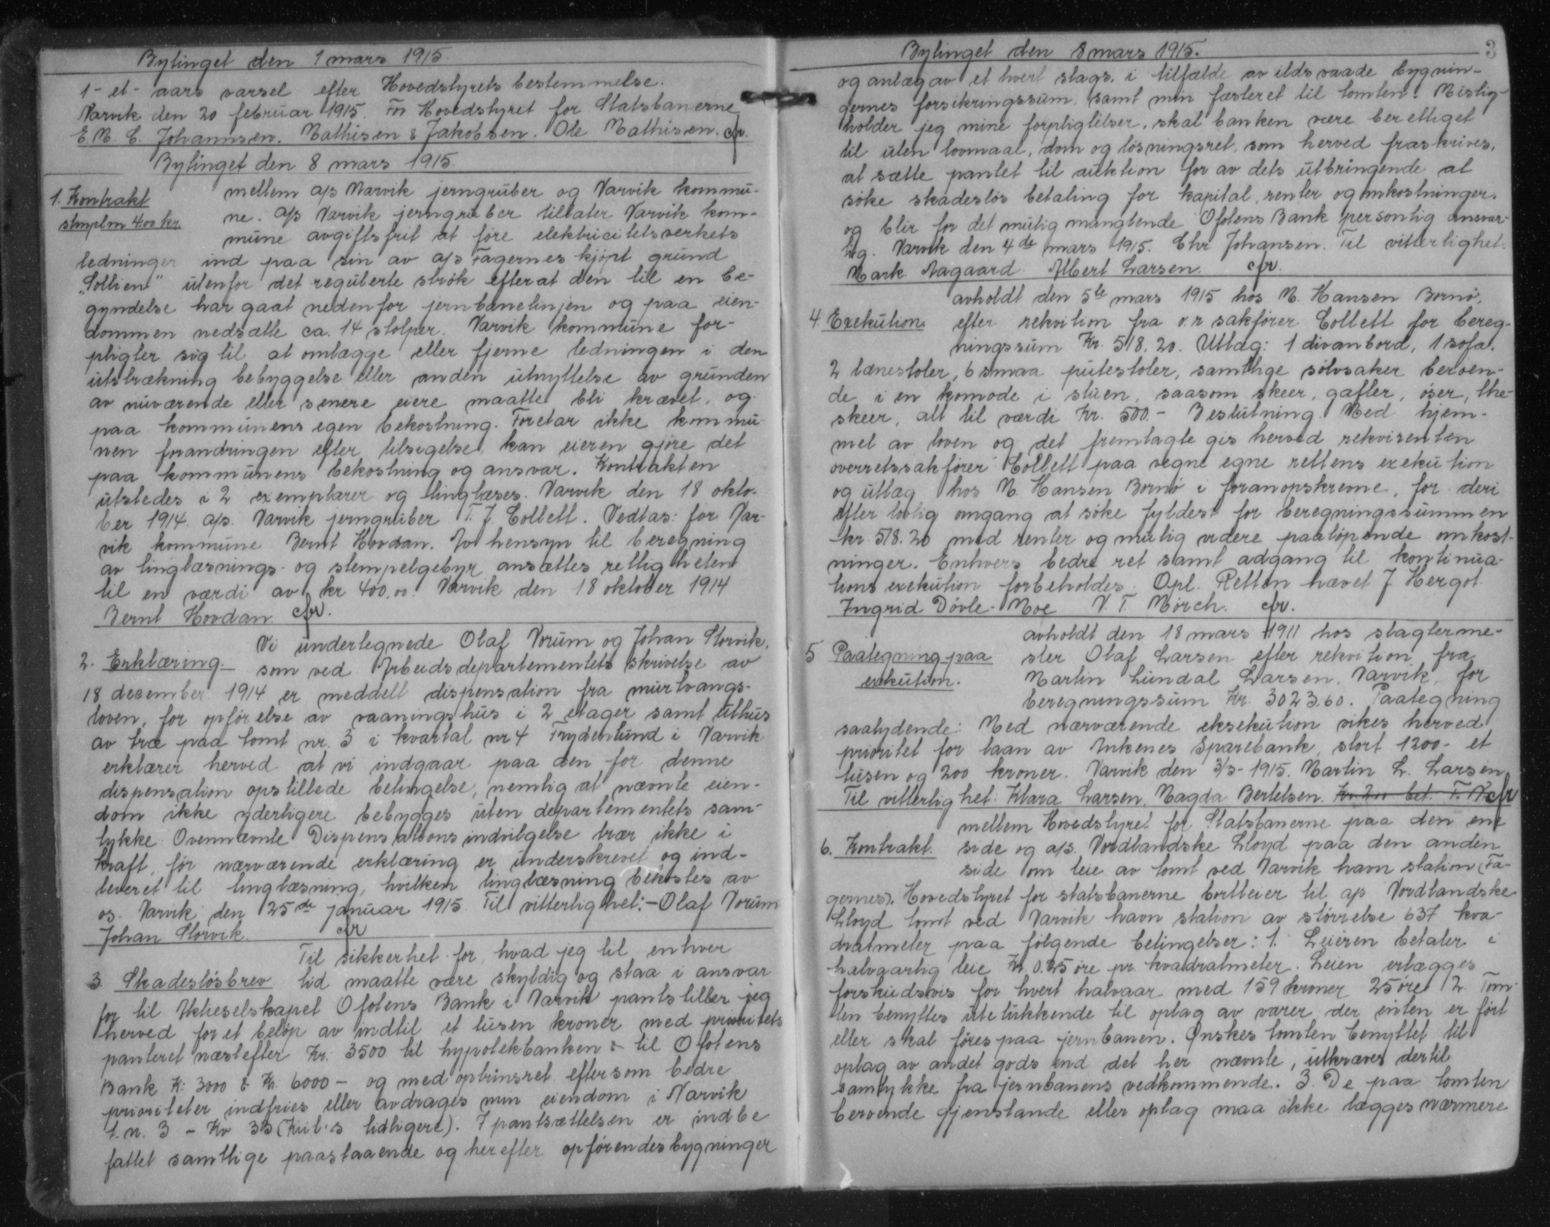 Bytinget den 1 mars 1915.
1- et- aars varsel efter Hovedstyrets bestemmelse.
Narvik den 20 februar 1915. For Hovedstyret for Statsbanerne
E. M. C. Johannsen. Mathisen & Jakobsen. Ole Mathisen. cfr.
Bytinget den 8 mars 1915.
1. Kontrakt mellem a/s Narvik jerngruber og Narvik kommu-
stmplm 400 kr. ne. a/s Narvik jerngruber tillater Narvik kom-
mune avgiftsfrit at føre elektricitetsverkets
ledninger ind paa sin av a/s Fagernes kjøpt grund
"Solliens" utenfor det regulerte strøk efterat den til en be-
gyndelse har gaat nedenfor jernbanelinjen og paa eien-
dommen nedsætte ca. 14 stolper. Narvik kommune for-
pligter sig til at omlægge eller fjerne ledningen i den
utstrækning bebyggelse eller anden utnyttelse av grunden
av nuværende eller senere eiere maatte bli krævet, og
paa kommunens egen bekostning. Foretar ikke kommu-
nen forandringen efter tilsigelse kan eieren gjøre det
paa kommunens bekostning og ansvar. Kontrakten
utstedes i 2 exemplarer og tinglæses. Narvik den 18 okto-
ber 1914. a/s. Narvik jerngruber T. J. Collett. Vedtas: for Nar-
vik kommune Bernt Hovdan. Av hensyn til beregning
av tinglæsnings- og stempelgebyr ansættes rettigheten
til en værdi av kr 400,00 Narvik den 18 oktober 1914
Bernt Hovdan cfr.
Vi undertegnede Olaf Norum og Johan Storvik,
2. Erklæring som ved Arbeidsdepartementets skrivelse av
18 december 1914 er meddelt dispensation fra murtvangs-
loven, for opførelse av vaaningshus i 2 etager samt uthus
av træ paa tomt nr. 3 i kvartal nr 4 Frydenlund i Narvik
erklærer herved at vi indgaar paa den for denne
dispensation opstillede betingelse, nemlig at nævnte eien-
dom ikke yderligere bebygges uten departementets sam-
tykke Ovennævnte Dispensationsindvilgelse trær ikke i
kraft, før nærværende erklæring er underskrevet og ind-
leveret til tinglæsning, hvilken tinglæsning bekostes av
os. Narvik den 25de januar 1915. Til vitterlighet:- Olaf Norum
Johan Storvik. cfr
Til sikkerhet for hvad jeg til enhver
3 Skadesløsbrev tid maatte være skyldig og staa i ansvar
for til Aktieselskapet Ofotens Bank i Narvik pantstiller jeg
herved for et beløp av indtil et tusen kroner med prioritets
panteret næstefter Kr. 3500 til hypotekbanken & til Ofotens
Bank Kr 3000 & Kr. 6000 - og med optrinsret eftersom bedre
prioriteter indfries eller avdrages min eiendom i Narvik
t. n. 3 - Kv 33 tidligere). I pantsættelsen er indbe
fattet samtlige paastaaende og herefter opførendes bygninger
Bytinget den 8 mars 1915. 3
og anlæg av et hvert slags. i tilfælde av ildsvaade bygnin-
gernes forsikringssum. samt min fæsteret til tomten. Mislig-
holder jeg mine forpligtelser, skal banken være berettiget
til uten lovmaal, dom og løsningsret, som herved fraskrives,
at sætte pantet til auktion for av dets utbringende at
søke skadesløs betaling for kapital, renter og omkostninger.
og blir for det mulig manglende Ofotens Bank personlig ansvar-
lig. Narvik den 4de mars 1915. Chr Johansen. Til vitterlighet.
Mark Aagaard. Albert Larsen. cfr.
avholdt den 5te mars 1915 hos N. Hansen Bornø.
4. Exekution. efter rekvition fra o.r sakfører Collett for bereg-
ningssum Kr. 518.20. Utlæg: 1 divanbord, 1 sofa.
2 lænestoler, 6 smaa putestoler, samtlige sølvsaker beroen-
de i en komode i stuen, saasom skeer, gafler, øser, the-
skeer, alt til værdi Kr. 500- Beslutning Med hjem-
mel av loven og det fremlagte gis herved rekvisenten
overretssakfører Collett paa vegne egne rettens exekution
og utlæg hos N. Hansen Bornø i foranopskrevne, for deri
efter lovlig omgang at søke fyldest for beregningssummen
kr 518.20 med renter og mulig videre paaløpende omkost-
ninger. Enhvers bedre ret samt adgang til kontinua-
tions exekution forbeholdes. Opl. Retten hævet J Hergot
Ingrid Dövle-Moe N T Mörch. cfr.
avholdt den 18 mars 1911 hos slagterme-
5 Paategning paa ster Olaf Larsen efter rekvition fra
exekution. Martin Lundal Larsen, Narvik, for
beregningssum Kr. 3023.60. Paategning
saalydende: Med nærværende eksekution vikes herved
prioritet for laan av Ankenes Sparebank, stort 1200- et
tusen og 200 kroner. Narvik den 3/3- 1915. Martin L. Larsen
Til vitterlighet: Klara Larsen, Magda Bertelsen. cfr
mellem Hovedstyret for Statsbanerne paa den ene
6. Kontrakt. side og a/s. Nordlandske Lloyd paa den anden
side om leie av tomt ved Narvik havn station (Fa-
gernes). Hovedstyret for statsbanerne bortleier til a/s Nordlandske
Lloyd tomt ved Narvik havn station av størrelse 637 kva-
dratmeter paa følgende betingelser: 1. Leieren betaler i
halvaarlig leie Kr. 0.25 øre pr kvadratmeter. Leien erlægges
forskudsvis for hvert halvaar med 159 kroner 25 øre. 2 Tom-
ten benyttes utelukkende til oplag av varer der enten er ført
eller skal føres paa jernbanen. Ønskes tomten benyttet til
oplag av andet gods end det her nævnte, utkræves dertil
samtykke fra jernbanens vedkommende. 3. De paa tomten
beroende gjenstande eller oplag maa ikke lægges nærmere